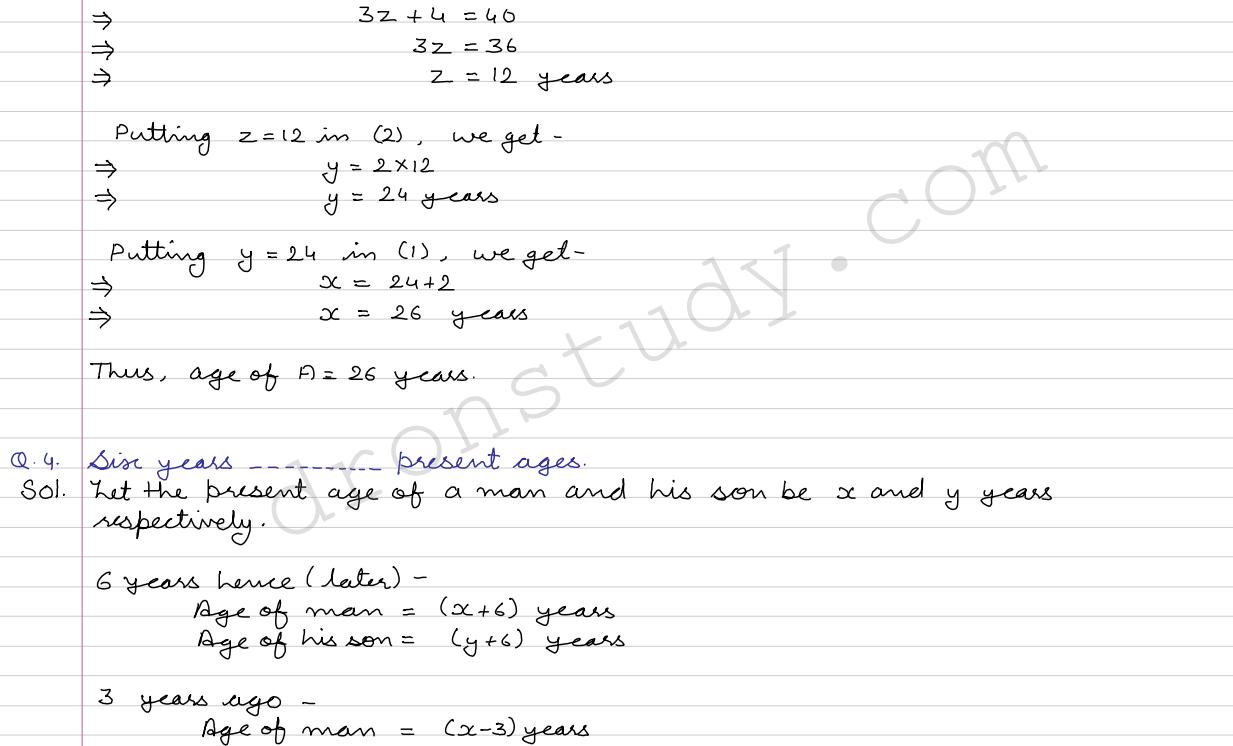 ⇒ 3z + 4 = 40
⇒ 3z = 36
⇒ z = 12 years
Putting z = 12 in (2), we get -
⇒ y = 2 × 12
⇒ y = 24 years
Putting y = 24 in (1), we get -
⇒ x = 24+2
⇒ x = 26 years
Thus, age of A = 26 years.
Q.4. Six years ---------- present ages.
Sol. Let the present age of a man and his son be x and y years
respectively.
6 years hence (later) -
Age of man = (x+6) years
Age of his son = (y+6) years
3 years ago -
Age of man = (x-3) years
dronstudy.com